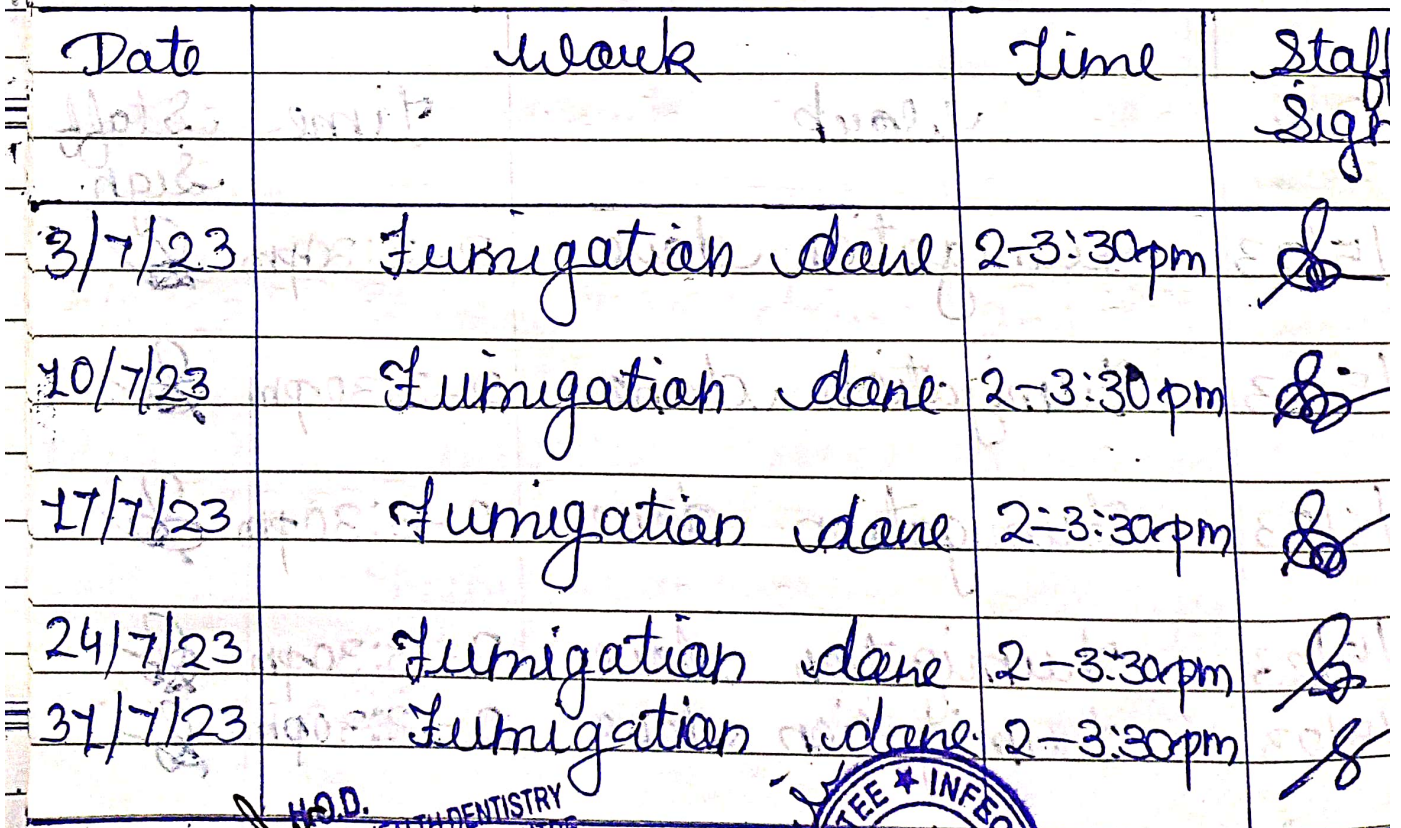 Date Work Time Staff
Sign
3/7/23 Fumigation done 2-3:30pm
10/7/23 Fumigation done 2-3:30pm
17/7/23 Fumigation done 2-3:30pm
24/7/23 Fumigation done 2-3:30pm
31/7/23 Fumigation done 2-3:30pm
H.O.D.
DENTISTRY